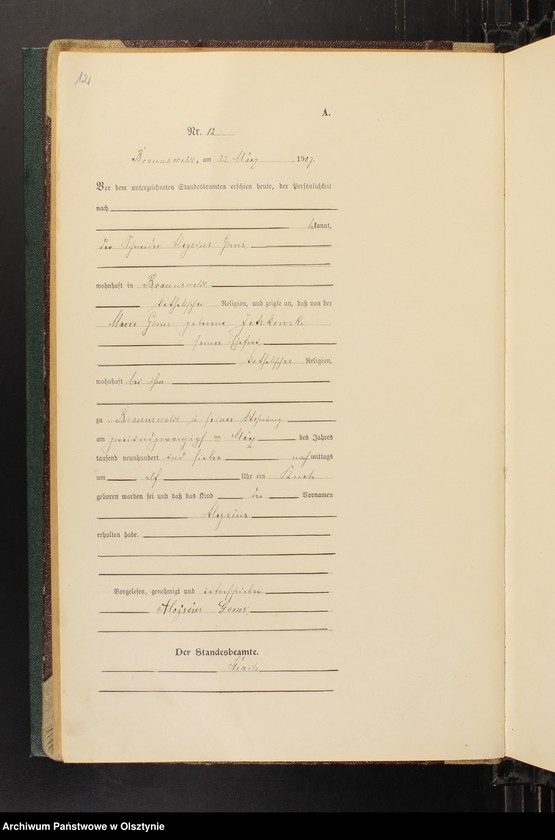 12
A.
Nr. 12
Braunswalde, am 23. März 1907.
Vor dem unterzeichneten Standesbeamten erschien heute, der Persönlichkeit
nach
kannt,
der Schneider Aloysius
wohnhaft in Braunswalde
katholischer Religion, und zeigte an, daß von der
Maria geborene
seiner Ehefrau
katholischer Religion,
wohnhaft bei ihm
zu Braunswalde in seiner Wohnung
am zweiundzwanzigsten März des Jahres
tausend neunhundert und sieben nachmittags
um elf Uhr ein Knabe
geboren worden sei und daß das Kind den Vornamen
Aloysius
erhalten habe.
Vorgelesen, genehmigt und unterschrieben
Aloysius
Der Standesbeamte.
Archiwum Państwowe w Olsztynie